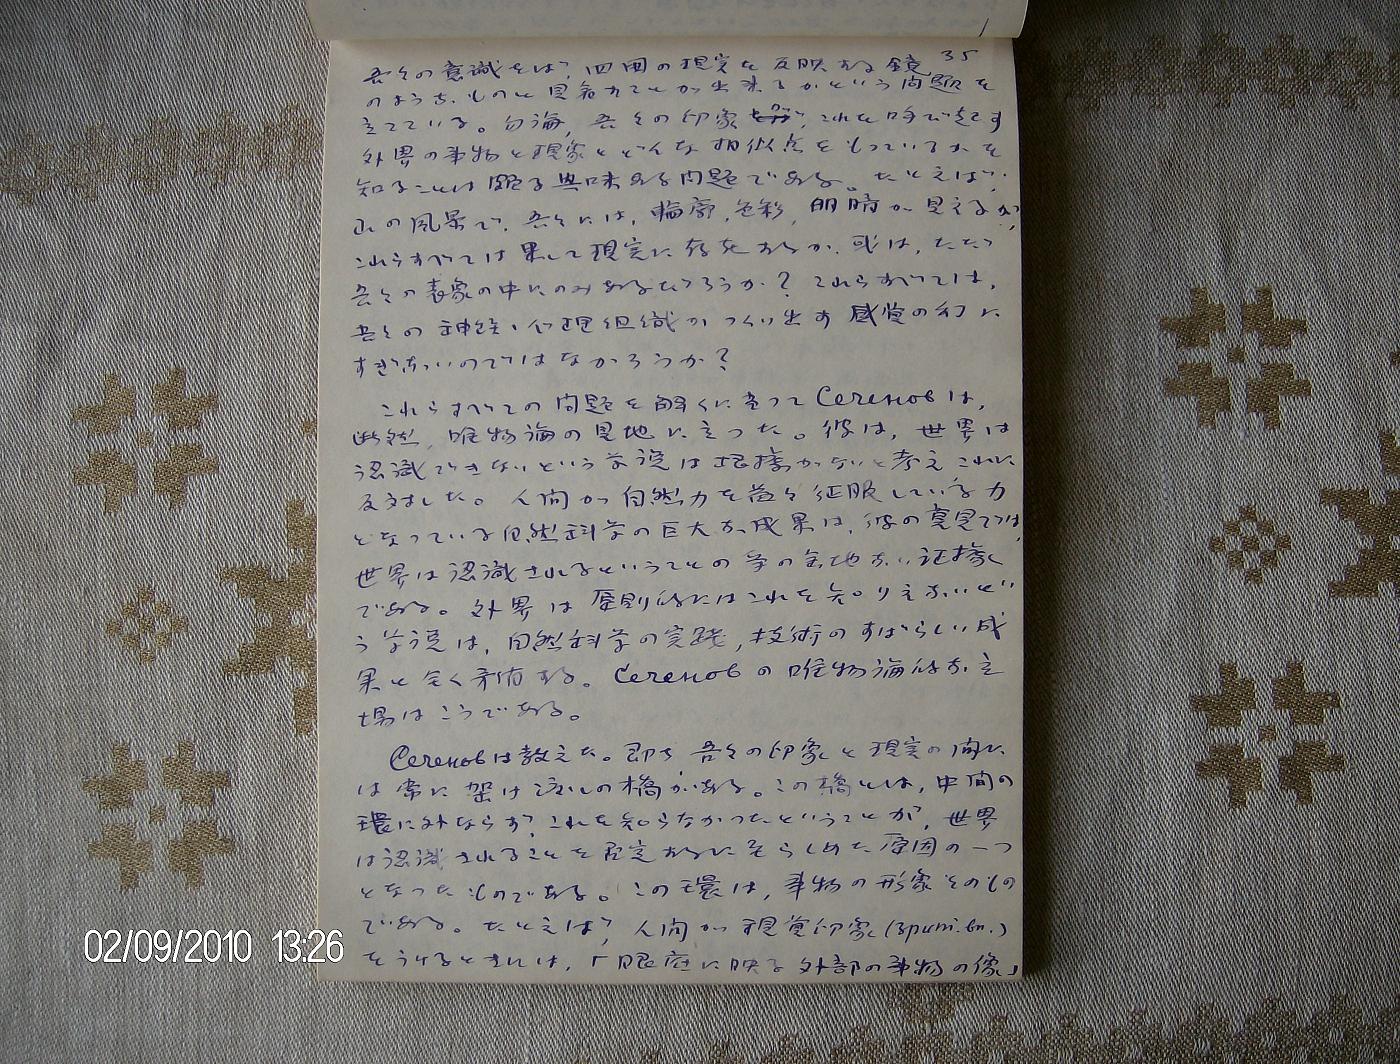 35
吾々の意識をば、四囲の現実を反映する鏡
のようなものと見做すことが出来るかという問題を
立てている。勿論、吾々の印象が、これを呼び起す
外界の事物と現象とどんな相似点をもっているかを
知ることは頗る興味ある問題である。たとえば、
山の風景で、吾々には、輪廓、色彩、明暗が見えるが、
これらすべては果して現実に存在するか、或は、ただ
吾々の表象の中にのみあるだろうか？これらすべては、
吾々の神経・心理組織がつくり出す感覚の幻に
すぎないのではなかろうか？
これらすべての問題を解くに当って Сеченов は、
断然、唯物論の見地に立った。彼は、世界は
認識できないという学説は根拠がないと考えこれに
反対した。人間が自然力を益々征服している力
となっている自然科学の巨大な成果は、彼の意見では、
世界は認識されるということの争う余地ない証拠
である。外界は原則的にはこれを知りえないとい
う学説は、自然科学の実践、技術のすばらしい成
果と全く矛盾する。Сеченов の唯物論的な立
場はこうである。
Сеченов は教えた。即ち 吾々の印象と現実の間に
は常に架け渡しの橋がある。この橋とは、中間の
環に外ならず、これを知らなかったということが、世界
は認識されることを否定するに至らしめた原因の一つ
となったものである。この環は、事物の形象そのもの
である。たとえば、人間が視覚印象(зрит. вп.)
をうけるときには、「眼底に映る外部の事物の像」
02/09/2010 13:26